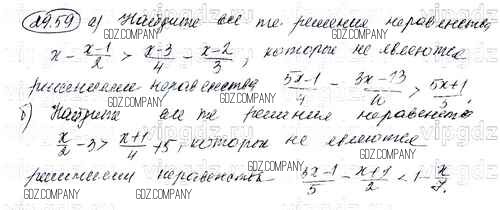 29.59 а) Найдите все те решения неравенства
x - \frac{x-1}{2} > \frac{x-3}{4} - \frac{x-2}{3}, которые не являются
решениями неравенства \frac{5x-1}{4} - \frac{3x-13}{10} > \frac{5x+1}{3}.
б) Найдите все те решения неравенства
\frac{x}{2} - 3 > \frac{x+1}{4} + 5, которые не являются
решениями неравенства \frac{3x-1}{5} - \frac{x+1}{2} < 1 - \frac{x}{7}.
GDZ.COMPANY
vipgdz.ru